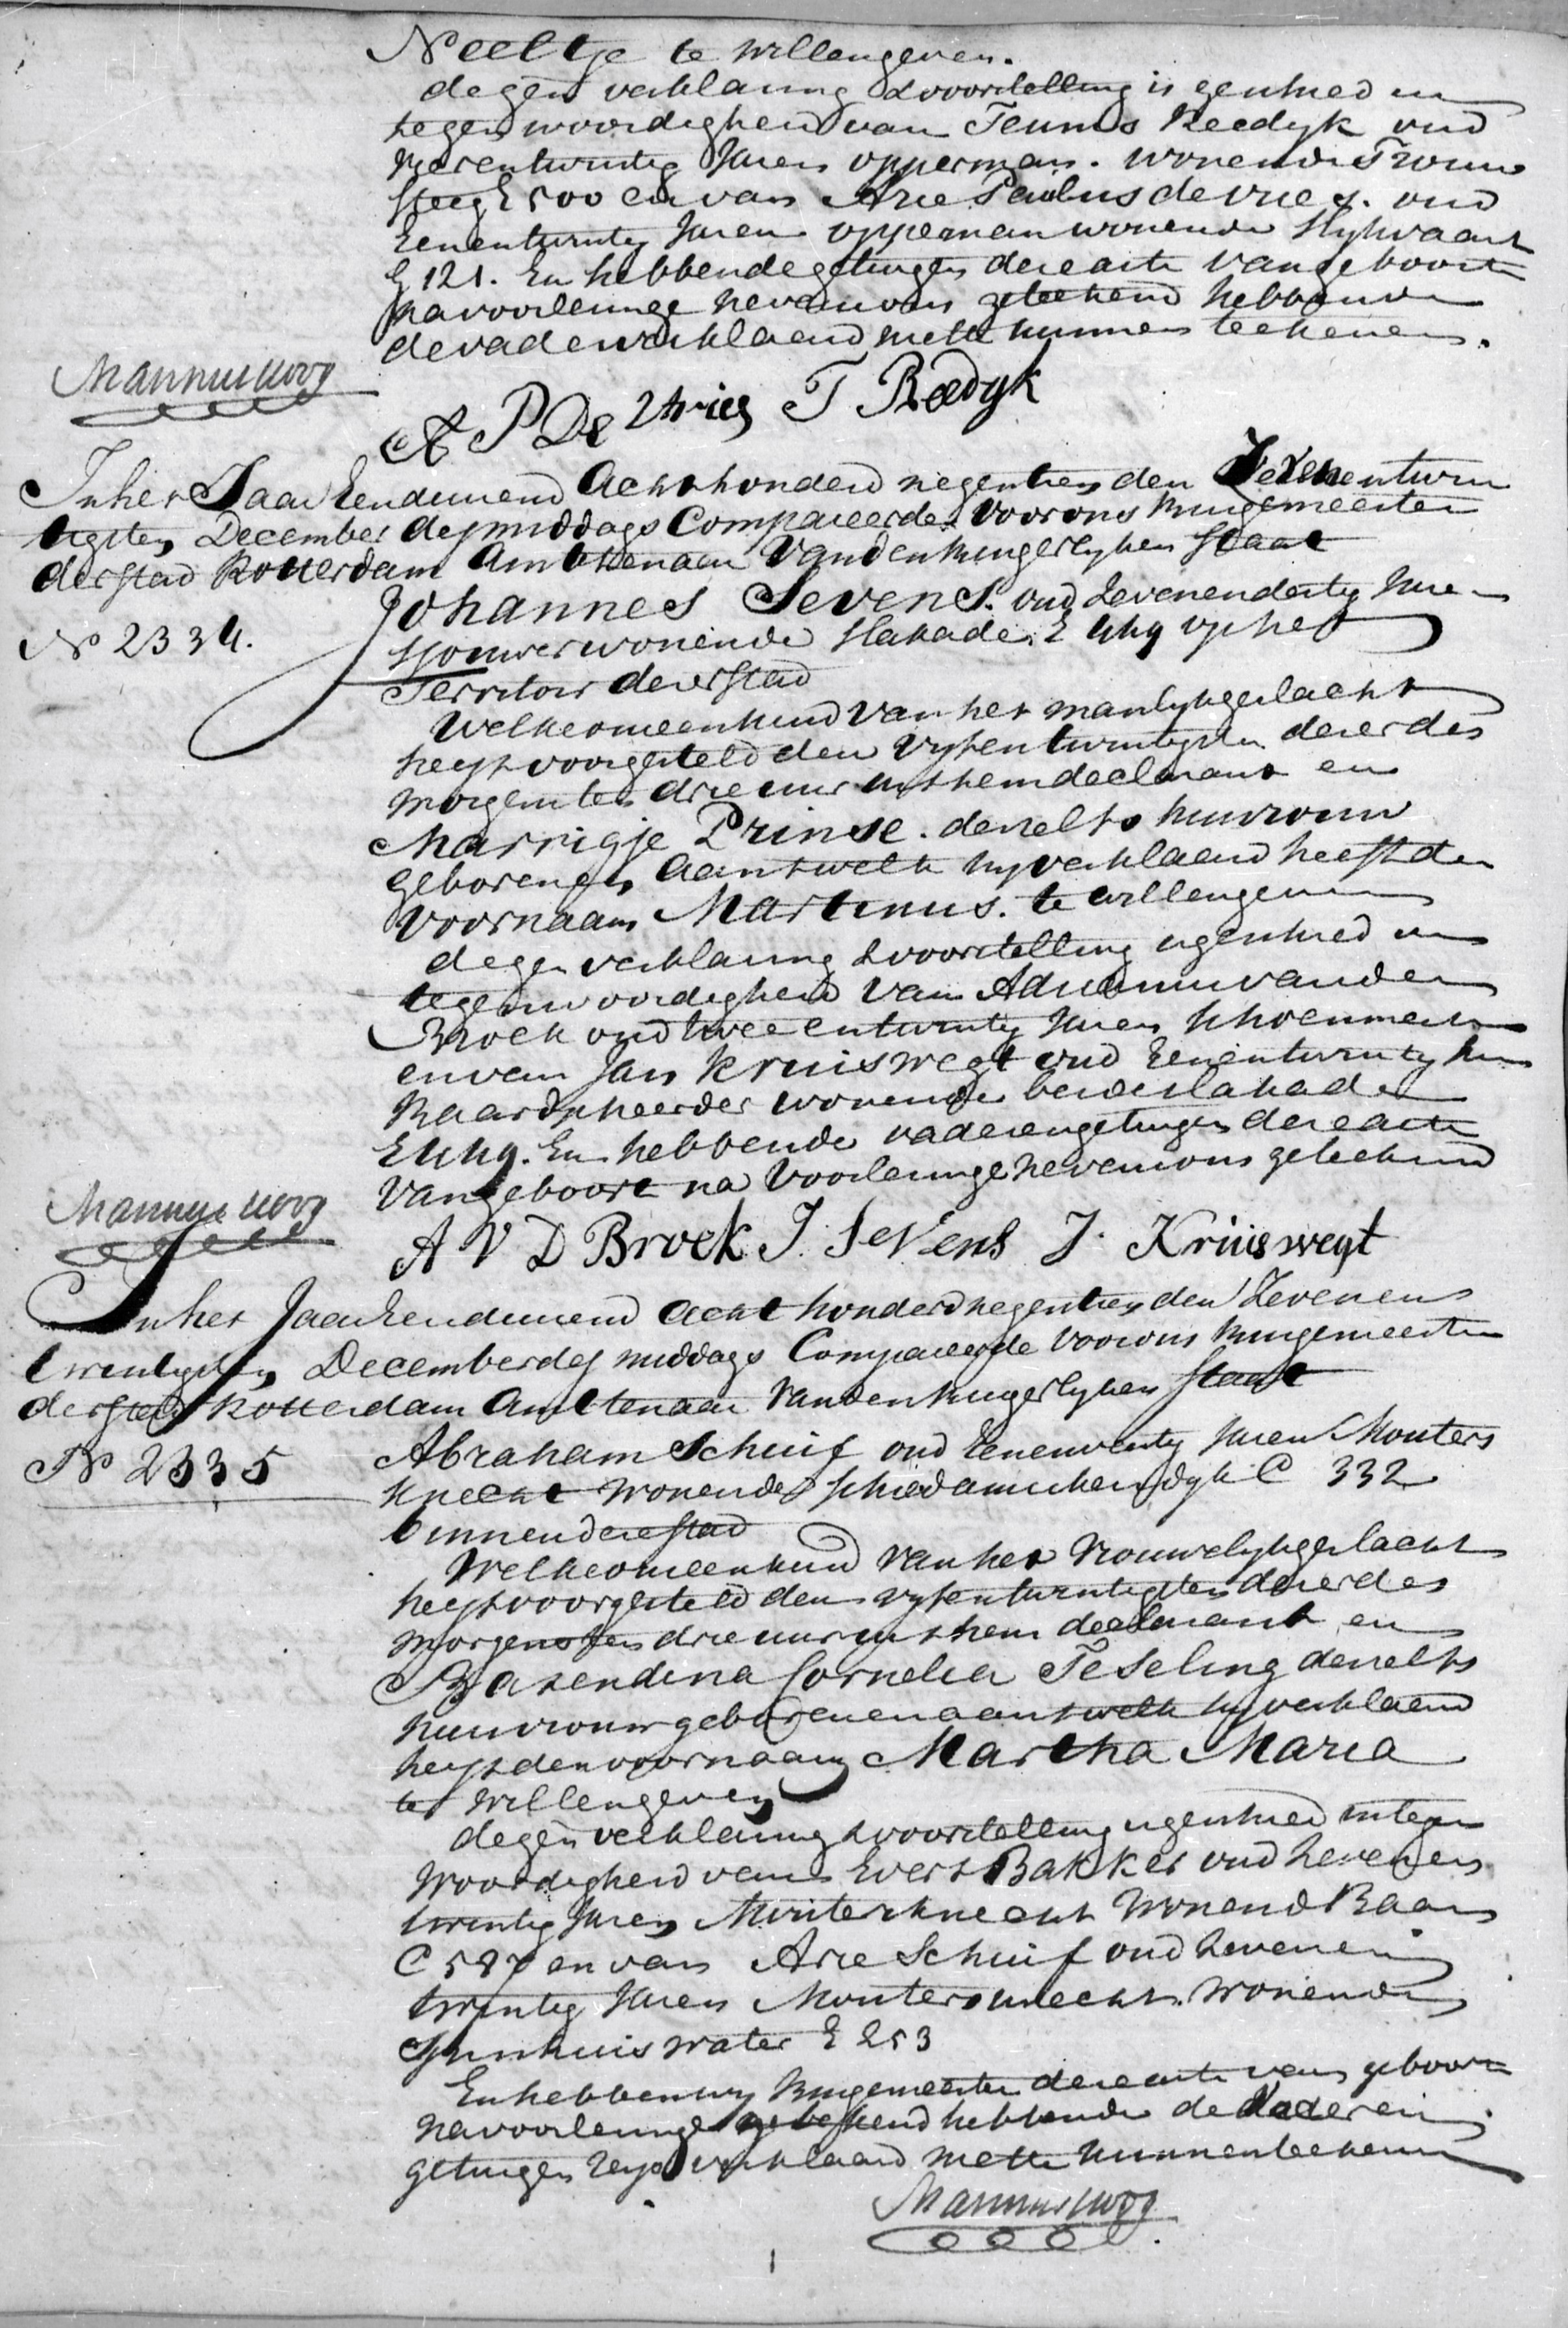 Neeltje te willengeven.
dezen verklaring & voorstelling is geschied in
tegenwoordigheid van Teunis Reedyk oud
entwintig Jaren opperman. wonende Vrouwe
steeg E 500 en van Arie Paulus de vries. oud
Eenentwintig Jaren opperman wonende Slykvaart
G 121. En hebbende getuigen deze acte van geboorte
na voorleezinge nevens ons geteekend hebbende
de vader verklaard niette kunnen teekenen.
A P De Vries T Redyk
In het Jaar Eenduizend Achthonderd negentien den Zevenentwin
tigsten December des middags Compareerde Voor ons Burgemeester
der stad Rotterdam Ambtenaar Van den Burgerlyken Staat
No 2334.
Johannes Sevens. oud Zevenendertig Jare
sjouwer wonende Stakade E 449 op het
Territoir dezer stad
Welke ons een kind Van het manlyk geslacht
heeft voorgesteld den Vyfentwintigsten dezer des
morgens ten drie uur uit hem declarant en
Marrigje Prinse. deszelfs huisvrouw
geboren en Aan twelk hy verklaard heeft den
Voornaam Martinus. te willen geven
dezen verklaring & voorstelling is geschied in
tegenwoordigheid Van Adrianus van den
Broek oud twee entwintig Jaren schoenmaker
en van Jan Kruiswegt oud Eenentwintig Jaren
wonende beide Stakade
E 449. En hebbende vader en getuigen deze acte
Van geboorte na Voorleezinge nevens ons geteekend
A V D Broek J. Sevens J. Kruiswegt
In het Jaar Eenduizend Acht honderd negentien den Zevenen
twentigsten December des middags Compareerde Voor ons Burgemeester
der stad Rotterdam Ambtenaar Van den Burgerlyken Staat
No 2335
Abraham Schuif oud Eenentwintig Jaren Mouters
Knecht Wonende Schiedamschen dyk C 332
binnen deze stad
Welke ons een kind Van het Vrouwelyk geslacht
heeft voorgesteld den vyfentwintigsten dezer des
morgens ten drie uur uit hem declarant en
Barendina Cornelia Teseling deszelfs
huisvrouw geboren en aan twelk hy verklaard
heeft den voornaam Martha Maria
te Willen geven
dezen verklaring & voorstelling is geschied in tegen
Woordigheid van Evert Bakker oud Zevenen
twintig Jaren Moutersknecht Wonend Baan
C 587 en van Arie Schuif oud Zevenen
twintig Jaren Moutersknecht. Wonende
Spinhuis water E 253
En hebben wy Burgemeester deze acte van geboorte
na voorleezinge geteekend hebbende de Vader en
getuigen Verklaard niette kunnen teekenen